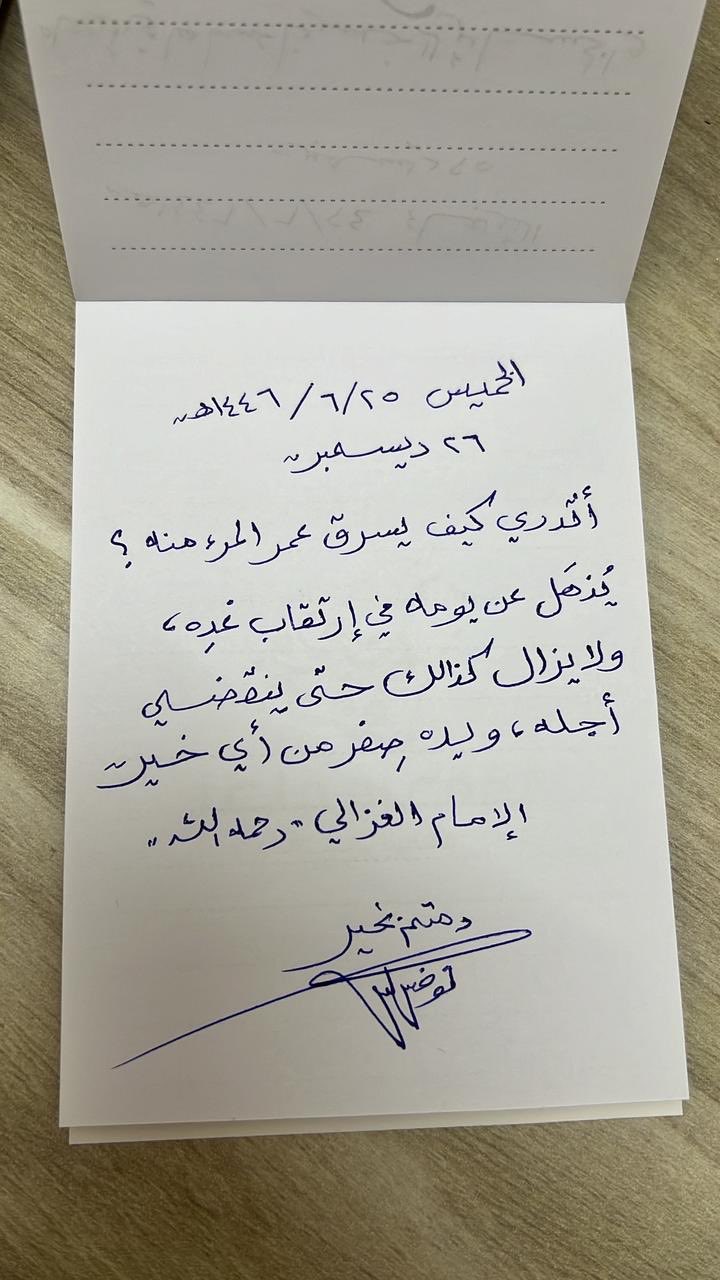 الخميس ٢٥/ ٦/ ١٤٤٦هـ
٢٦ ديسمبر
أتدري كيف يسرق عمر المرء منه ؟
يُذهَل عن يومه في إرتقاب غدِه،
ولا يزال كذالك حتّى ينقضي
أجله، ويده صِفر من أي خير
الإمام الغزالي "رحمه الله"
دمتم بخير